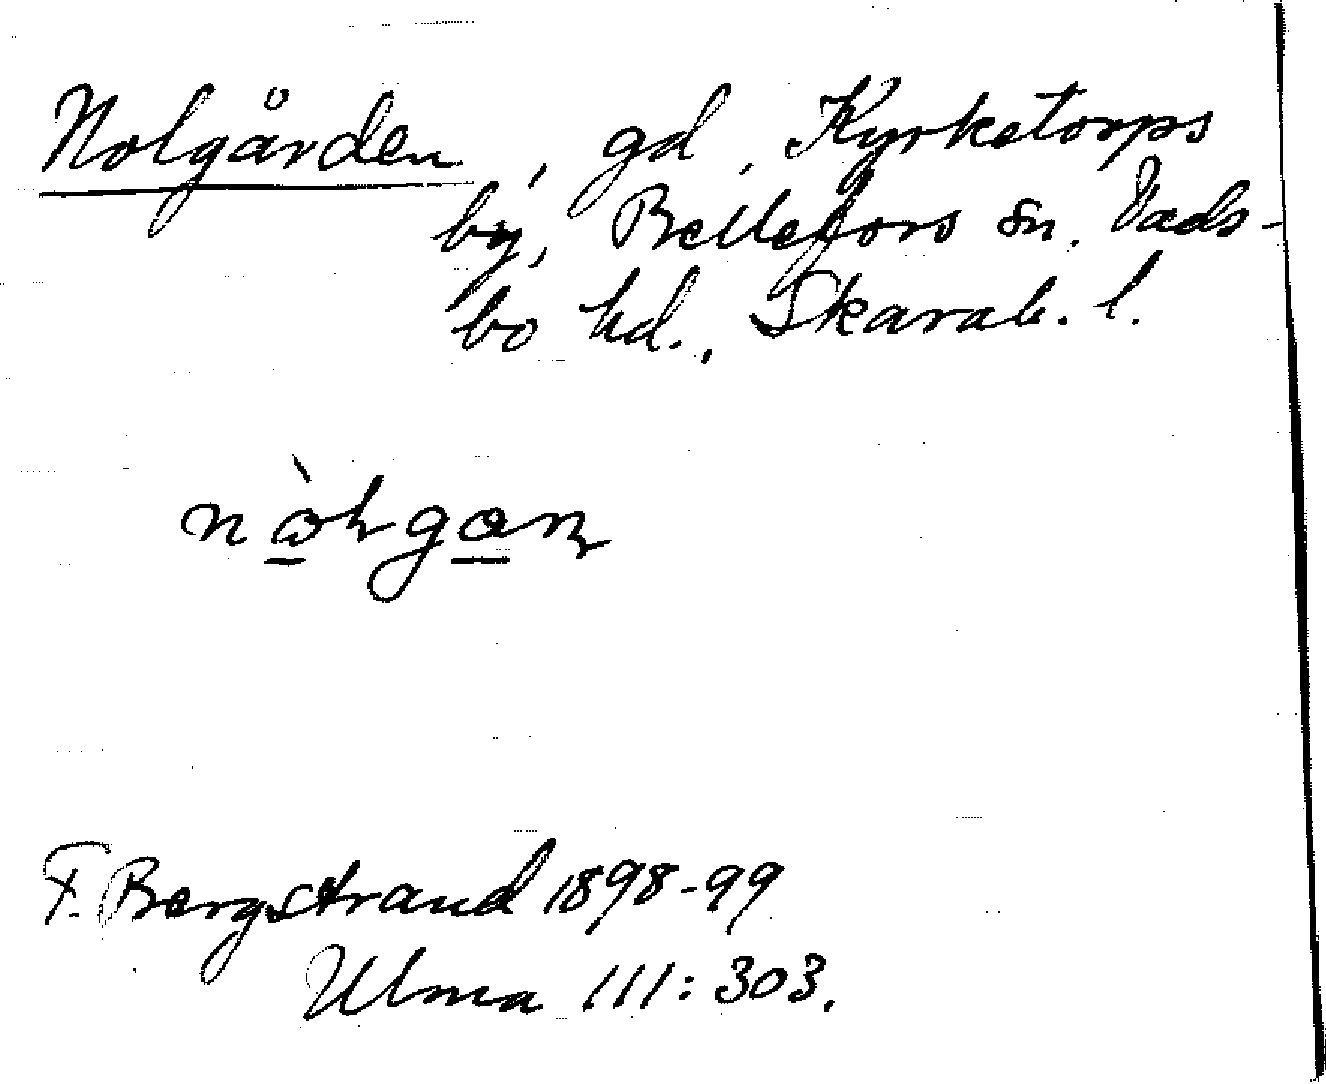 Nolgården, gd, Kyrketorps
by, Bellefors sn. Vads-
bo hd., Skarab. l.
nòlgan
F. Bergstrand 1898-99
Ulma 111:303.